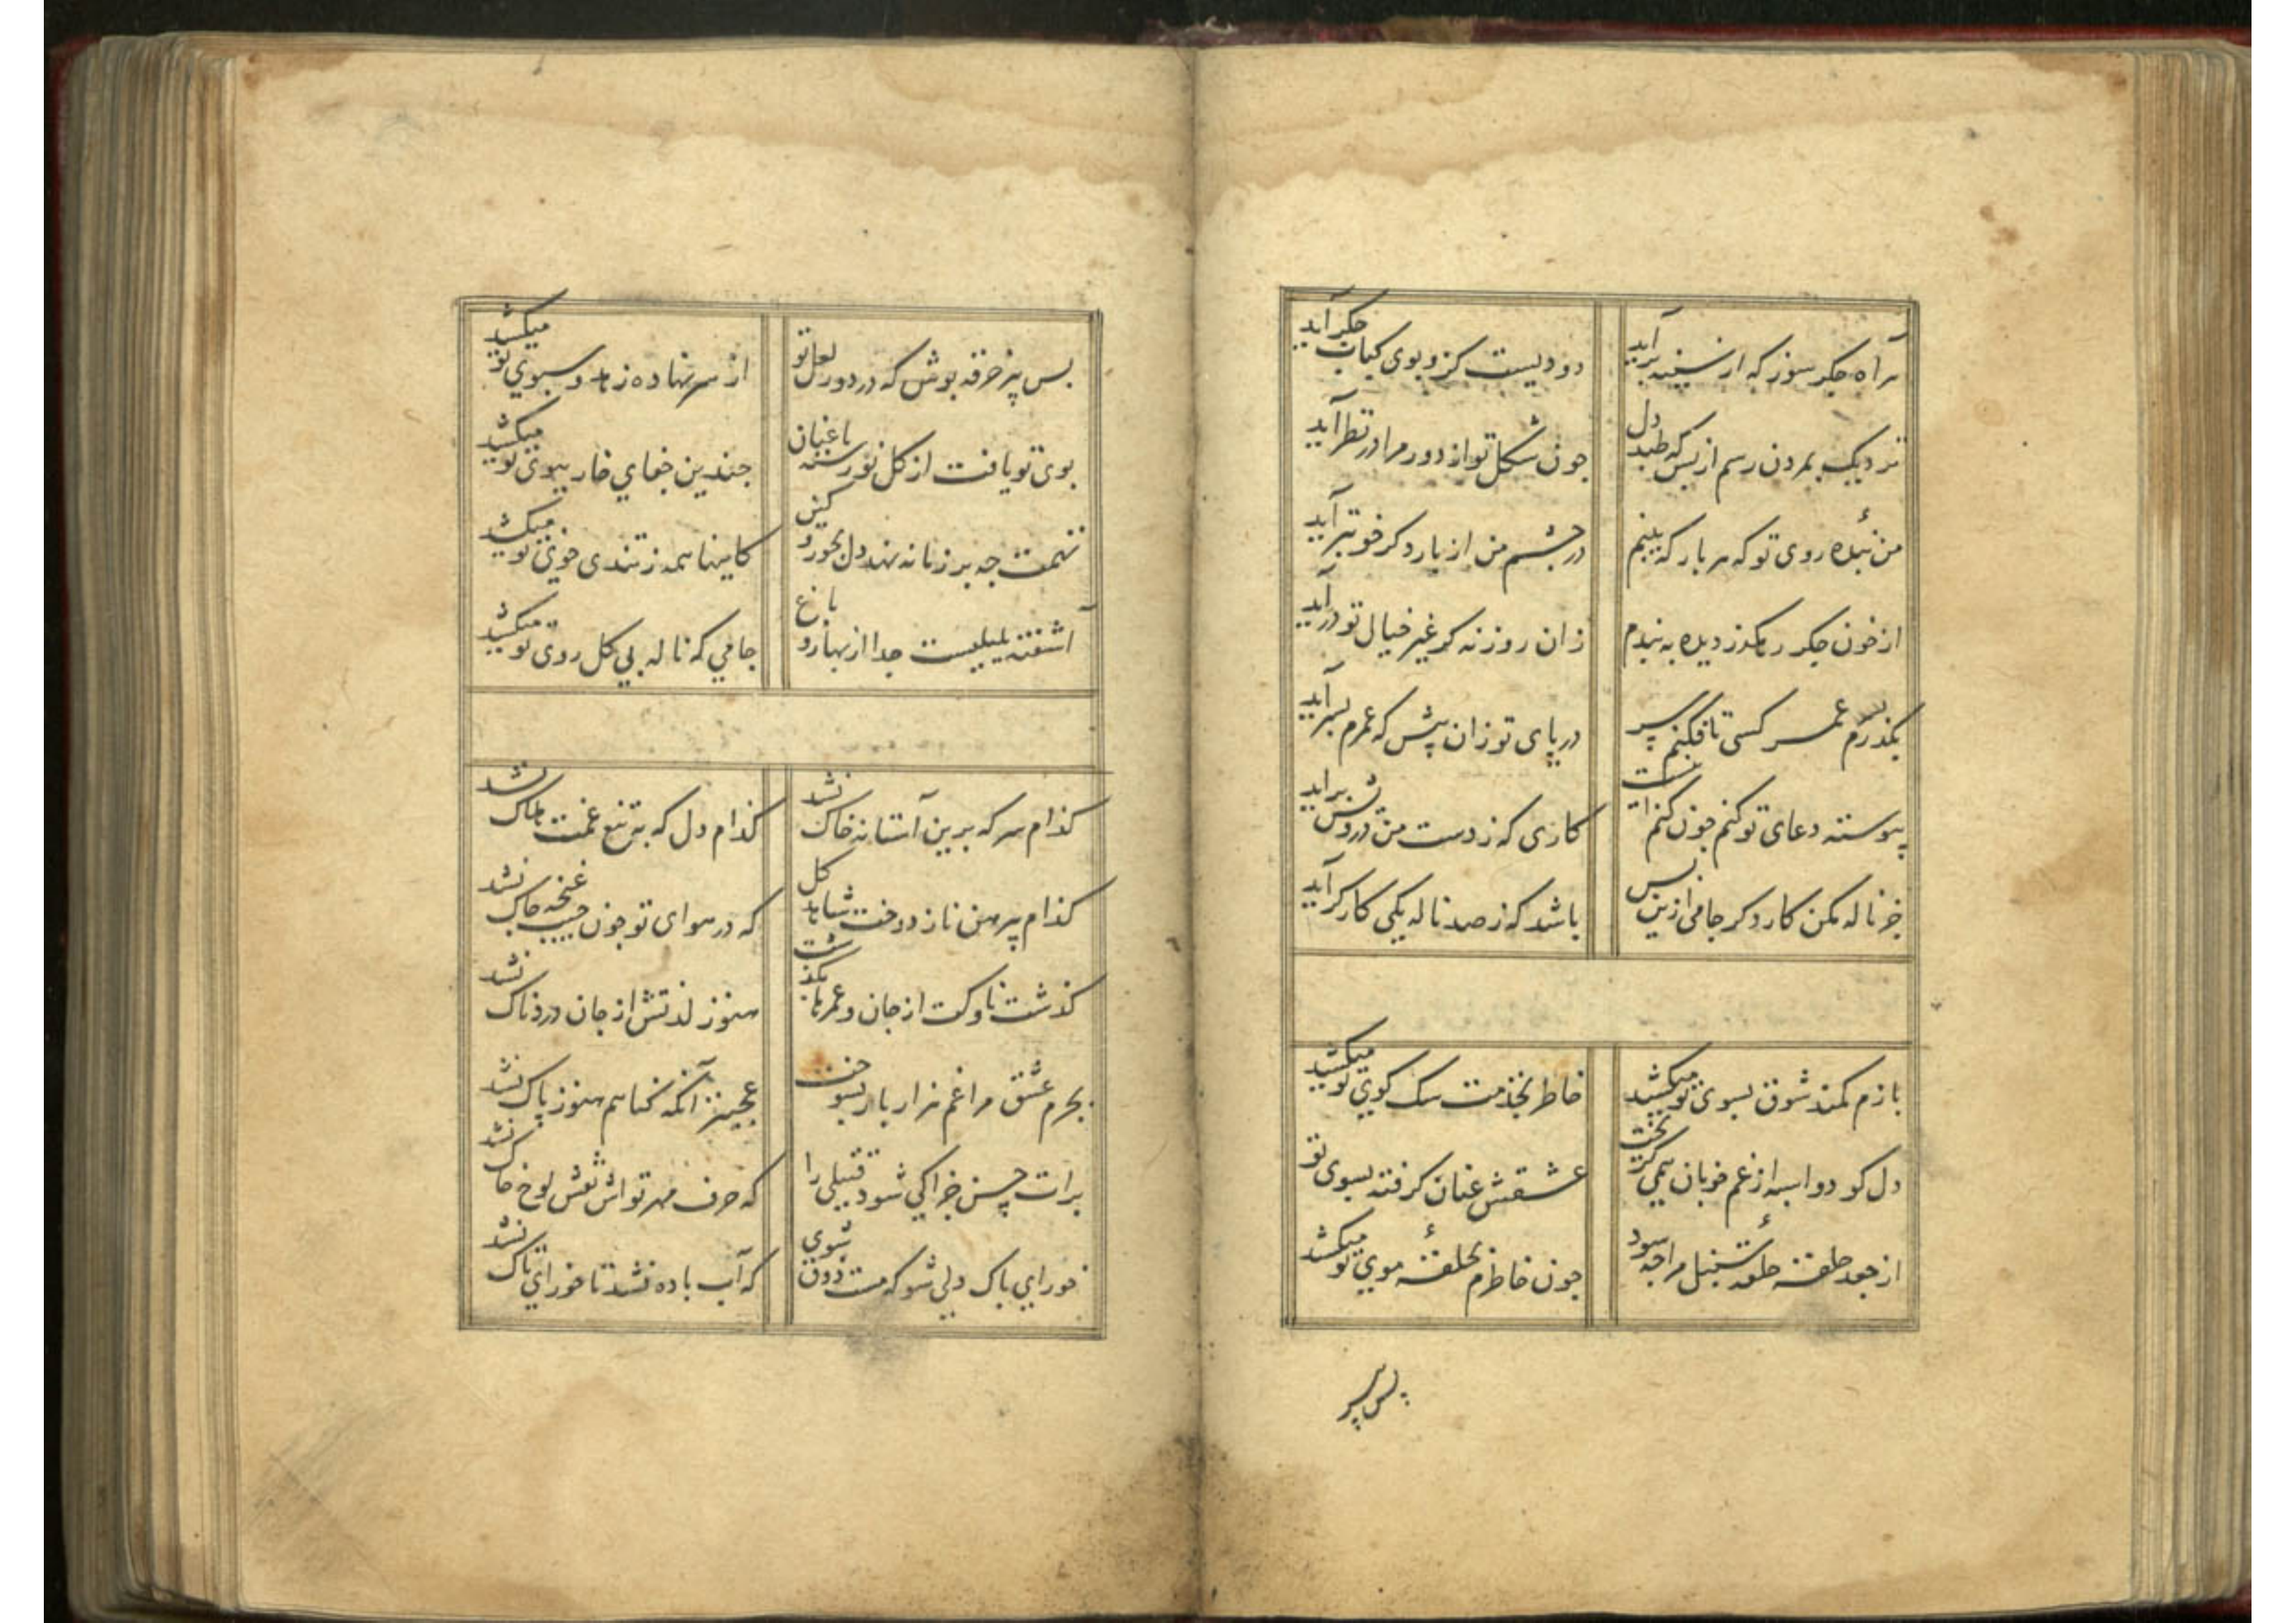 هر آه جکر سوز که از سینه برآید
دودیست کزو بوی کباب جکر آید
نزدیک بمردن رسم از بس که طبد دل
جون شکل تو از دور مرا در نظر آید
من بندهٔ روی تو که هر بار که بینم
در جشم من از بار دکر خوبتر آید
از خون جکر رهکذر دیده به بندم
زان روزنه کر غیر خیال تو درآید
بکذر بسرم عمر کسی تا فکنم سر
در پای تو زان پیش که عمرم بسر آید
پیوسته دعای تو کنم جون کنم اینست
کاری که ز دست من درویش برآید
جز ناله مکن کار دکر جامی ازین بس
باشد که ز صد ناله یکی کارکر آید
بازم کمند شوق بسوی تو میکشد
خاطر بخدمت سک کوی تو میکشد
دل کو دو اسبه از غم خوبان همی کریخت
عشقش عنان کرفته بسوی تو
از جعد حلقه حلقهٔ سنبل مرا جه سود
جون خاطرم بحلقهٔ موی تو میکشد
پس پیر
بس پیر خرقه پوش که در دور لعل تو
از سر نهاده زهد و سبوی تو میکشد
بوی تو یافت از کل نورسته باغبان
جندین جفای خار ببوی تو میکشد
تهمت جه بر زمانه نهد دل بجور و کین
کاینها همه ز تندی خوی تو میکشد
آشفته بلبلیست جدا از بهار و باغ
جامی که ناله بی کل روی تو میکشد
کذام سر که برین آستانه خاک نشد
کذام دل که به تیغ غمت هلاک نشد
کذام پیرهن ناز دوخت شاهد کل
که در هوای تو جون جیب غنچه جاک نشد
کذشت ناوکت از جان و عمرها بکذشت
هنوز لذتش از جان دردناک نشد
بجرم عشق مرا غم هزار بار بسوخت
عجبتر آنکه کناهم هنوز پاک نشد
برات حسن جزا کی شود قتیلی را
که حرف مهر تواش نقش لوح خاک نشد
خورای پاک دلی شو که مست ذوق شوی
که آب باده نشد تا خورای تاک نشد